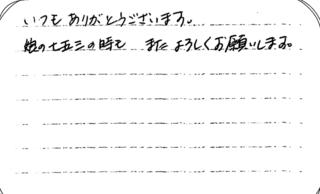 いつもありがとうございます。
娘の七五三の時も またよろしくお願いします。